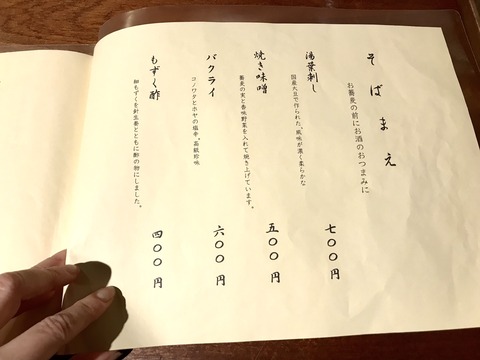 そばまえ
お蕎麦の前にお酒のおつまみに
湯葉刺し
国産大豆で作られた、風味が濃く柔らかな
七〇〇円
焼き味噌
蕎麦の実と香味野菜を入れて焼き上げています。
五〇〇円
バクライ
コノワタとホヤの塩辛。高級珍味
六〇〇円
もずく酢
細もずくを針生姜とともに酢の物にしました。
四〇〇円